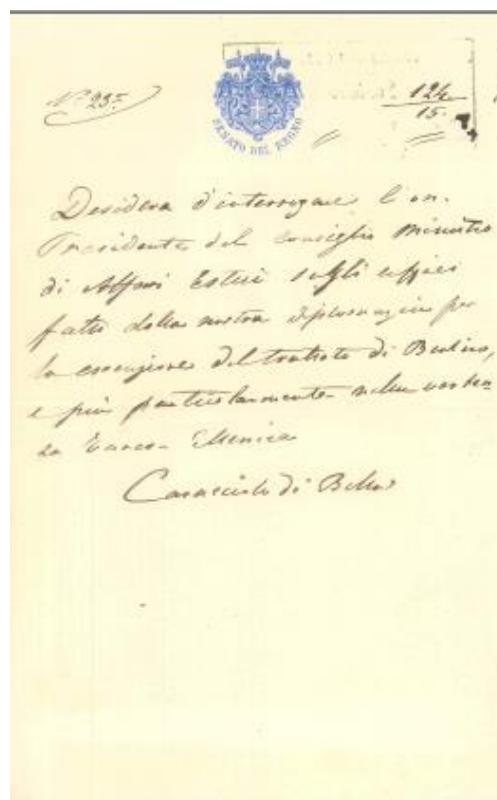 N.º 237
SENATO DEL REGNO
124
15
Desidera d'interrogare l'on.
Presidente del Consiglio Ministro
di Affari Esteri sugli uffici
fatti dalla nostra diplomazia per
la esecuzione del trattato di Berlino,
e più particolarmente nella verten=
za Turco-Ellenica
Caracciolo di Bella